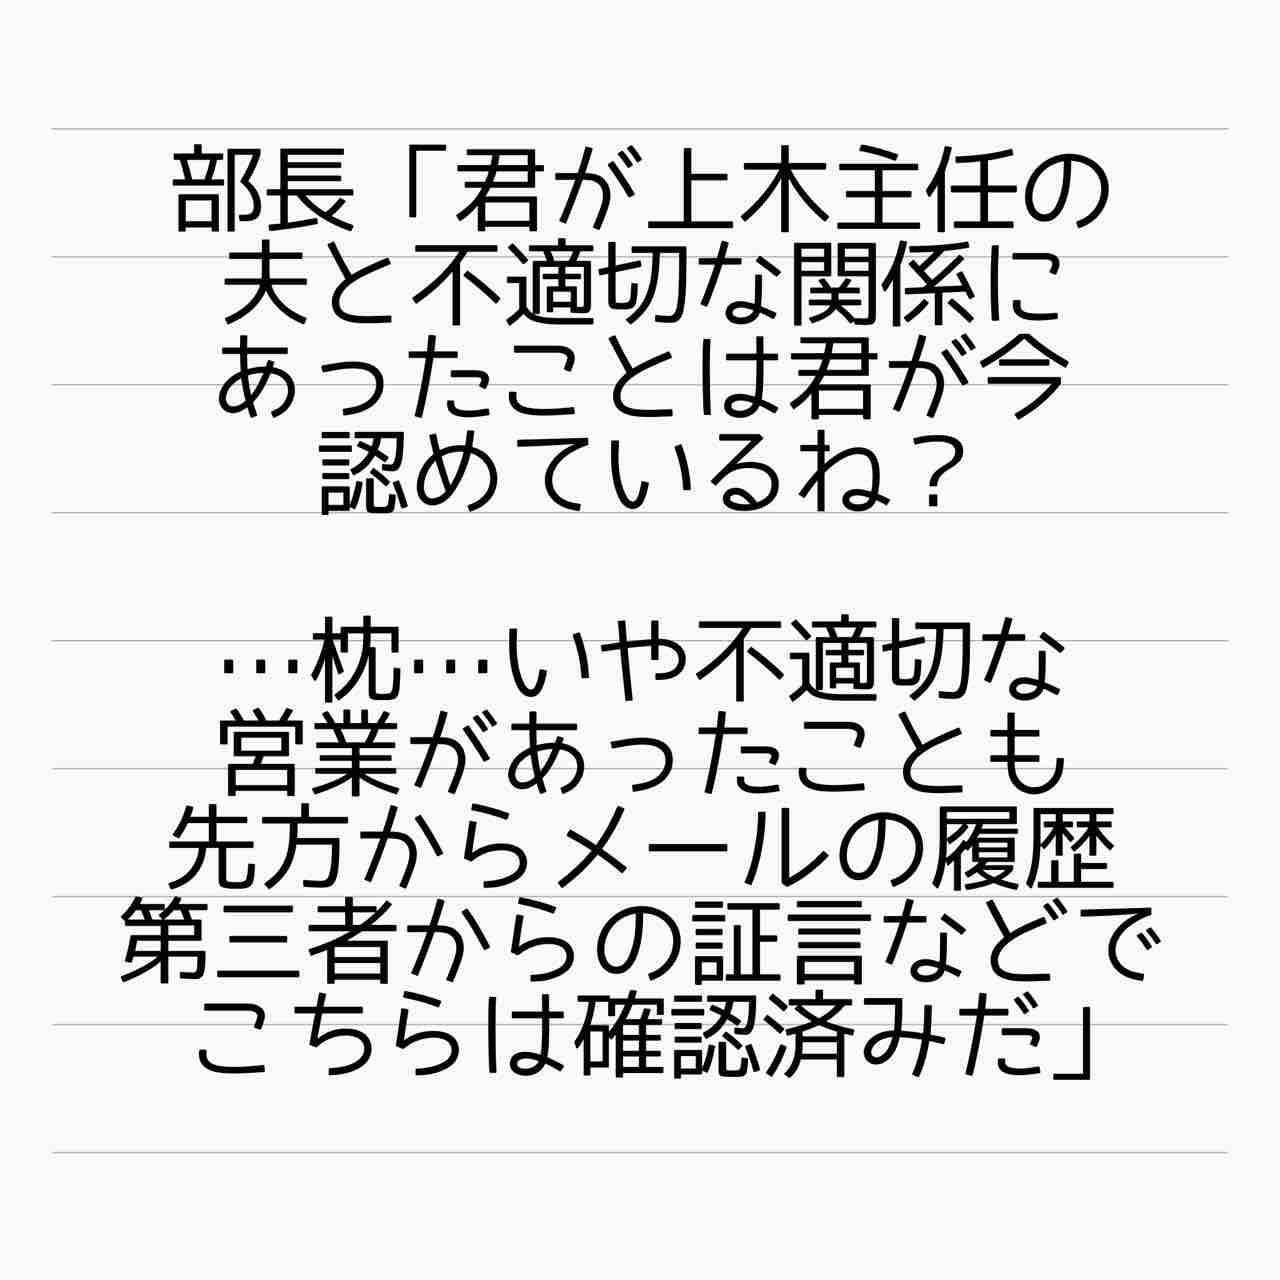 部長「君が上木主任の
夫と不適切な関係に
あったことは君が今
認めているね？
…枕…いや不適切な
営業があったことも
先方からメールの履歴
第三者からの証言などで
こちらは確認済みだ」